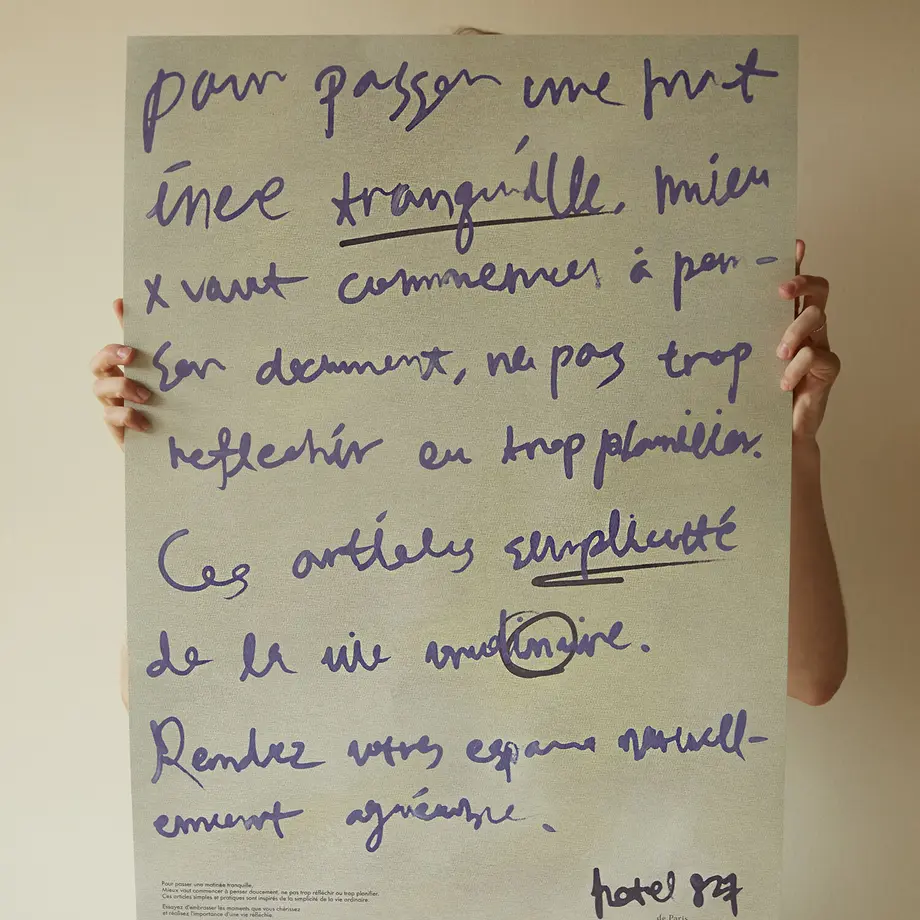 pour passer une nuit
inee tranquille, mieu
x vaut commencer à pen-
ser document, ne pas trop
reflechir ou trop planifier.
Ces articles simplicité
de la vie ordinaire.
Rendez votres espace naturell-
ement agréable.
hotel 827
de Paris
Pour passer une matinée tranquille.
Mieux vaut commencer à penser doucement, ne pas trop réfléchir ou trop planifier.
Ces articles simples et pratiques sont inspirés de la simplicité de la vie ordinaire.
Essayez d'embrasser les moments que vous chérissez
et réalisez l'importance d'une vie réfléchie.